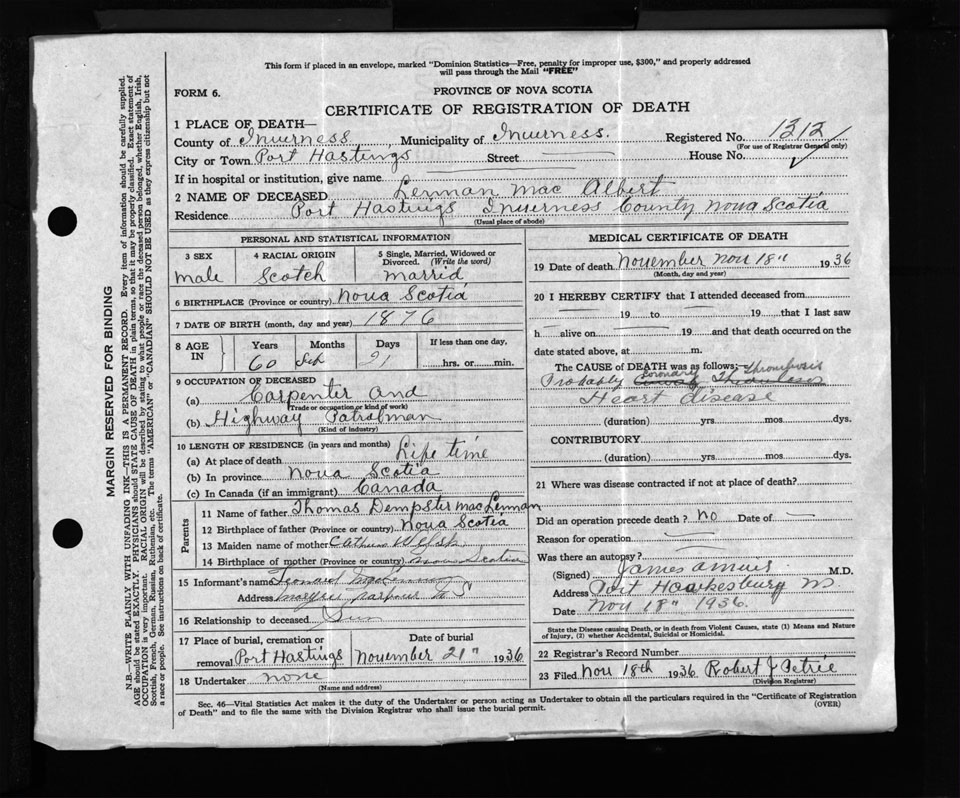 This form if placed in an envelope, marked "Dominion Statistics—Free, penalty for improper use, $300," and properly addressed
will pass through the Mail "FREE"
FORM 6.
PROVINCE OF NOVA SCOTIA
CERTIFICATE OF REGISTRATION OF DEATH
1 PLACE OF DEATH—
County of Inverness, Municipality of Inverness. Registered No. 1312
(For use of Registrar General only)
City or Town Port Hastings Street House No.
If in hospital or institution, give name
2 NAME OF DECEASED Lennan Mac Albert
Residence Port Hastings Inverness County Nova Scotia
(Usual place of abode)
PERSONAL AND STATISTICAL INFORMATION
3 SEX 4 RACIAL ORIGIN 5 Single, Married, Widowed or Divorced. (Write the word)
male Scotch marrid
6 BIRTHPLACE (Province or country) Nova Scotia
7 DATE OF BIRTH (month, day and year) 1876
8 AGE IN Years Months Days If less than one day,
60 21 hrs. or min.
9 OCCUPATION OF DECEASED
(a) Carpenter and
(Trade or occupation or kind of work)
(b) Highway Patrolman
(Kind of industry)
10 LENGTH OF RESIDENCE (in years and months)
(a) At place of death Life time
(b) In province Nova Scotia
(c) In Canada (if an immigrant) Canada
Parents
11 Name of father Thomas Dempster mac Lennan
12 Birthplace of father (Province or country) Nova Scotia
13 Maiden name of mother
14 Birthplace of mother (Province or country) Nova Scotia
15 Informant's name
Address
16 Relationship to deceased Son
17 Place of burial, cremation or removal Port Hastings Date of burial November 21" 1936
18 Undertaker none
(Name and address)
MEDICAL CERTIFICATE OF DEATH
19 Date of death November Nov 18" 1936
(Month, day and year)
20 I HEREBY CERTIFY that I attended deceased from
19 to 19 that I last saw
h alive on 19 and that death occurred on the
date stated above, at m.
The CAUSE of DEATH was as follows:
Probably Coronary Thrombosis
Heart disease
(duration) yrs mos. dys.
CONTRIBUTORY
(duration) yrs. mos. dys.
21 Where was disease contracted if not at place of death?
Did an operation precede death? No Date of
Reason for operation
Was there an autopsy?
(Signed) M.D.
Address Port Hawkesbury
Date Nov 18" 1936.
State the Disease causing Death, or in death from Violent Causes, state (1) Means and Nature
of Injury, (2) whether Accidental, Suicidal or Homicidal.
22 Registrar's Record Number
23 Filed Nov 18th 1936 Robert J Petrie
(Division Registrar)
Sec. 46—Vital Statistics Act makes it the duty of the Undertaker or person acting as Undertaker to obtain all the particulars required in the "Certificate of Registration
of Death" and to file the same with the Division Registrar who shall issue the burial permit. (OVER)
MARGIN RESERVED FOR BINDING
N.B.—WRITE PLAINLY WITH UNFADING INK—THIS IS A PERMANENT RECORD. Every item of information should be carefully supplied.
AGE should be stated EXACTLY. PHYSICIANS should STATE CAUSE OF DEATH in plain terms, so that it may be properly classified. Exact statement of
OCCUPATION is very important. RACIAL ORIGIN will be described by stating to what people or race the deceased person belonged, whether English, Irish,
Scottish, French, German, Russian, Ruthenian, etc. The terms "AMERICAN" or "CANADIAN" SHOULD NOT BE USED as they express citizenship but not
a race or people. See instructions on back of certificate.